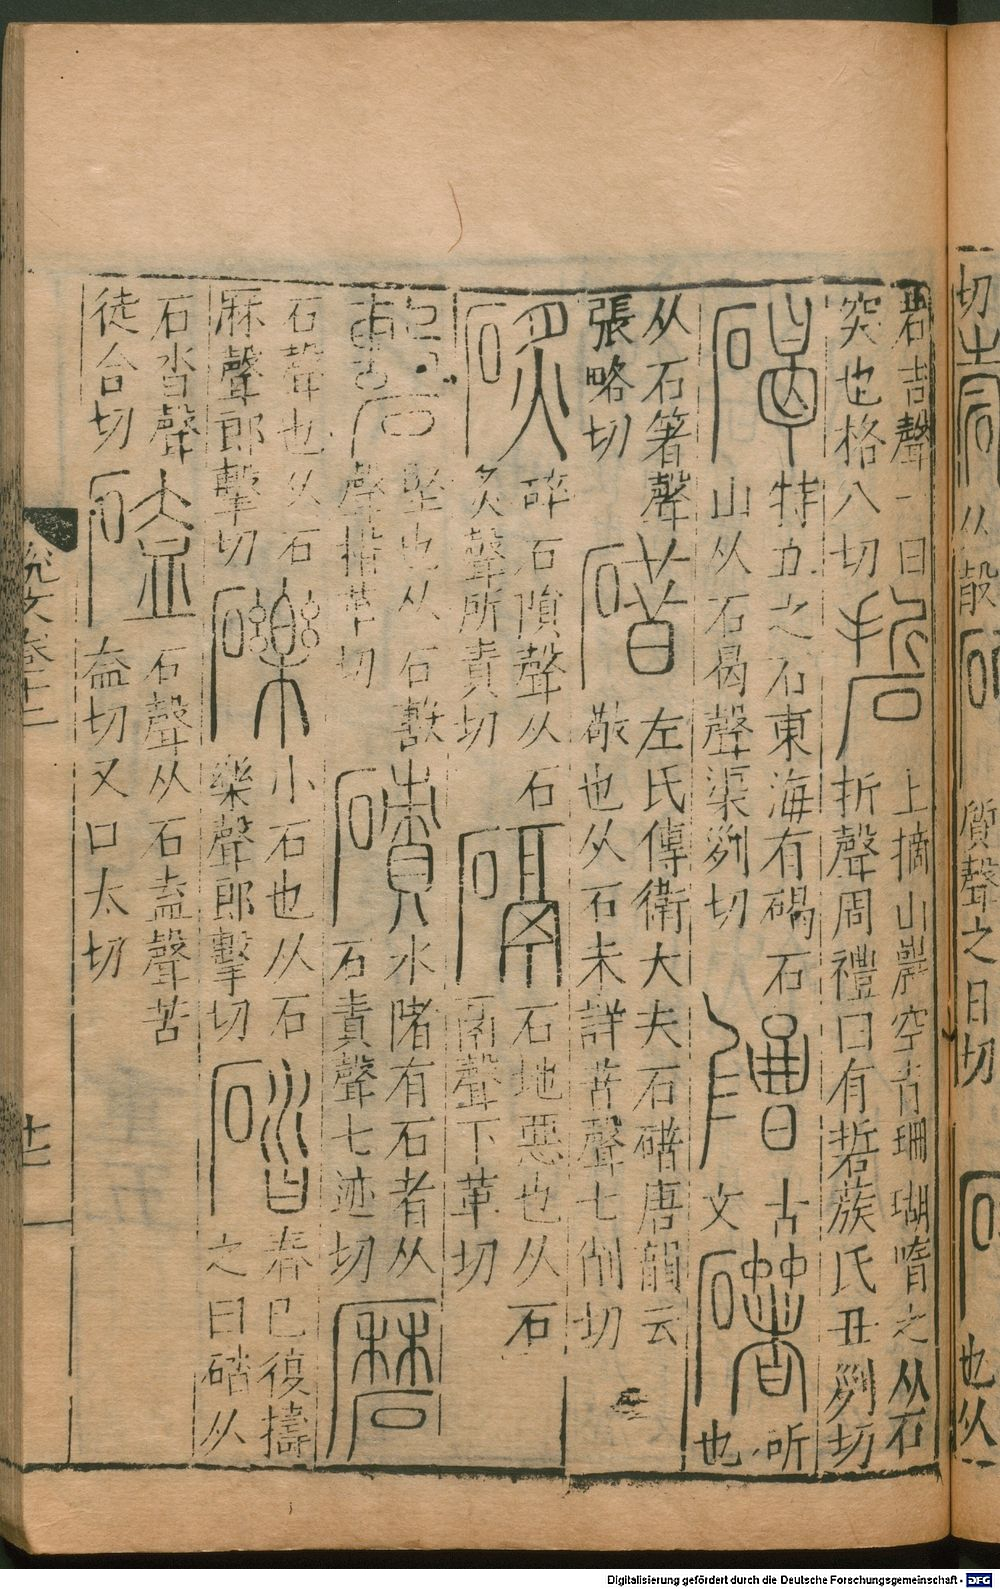 石吉聲一曰
突也格八切
硩
上摘山巖空青珊瑚墮之从石
折聲周禮曰有硩蔟氏丑列切
碣
特立之石東海有碣石
山从石曷聲渠列切
古
文
斫
也
从石箸聲
張略切
碏
左氏傳衛大夫石碏唐韻云
敬也从石未詳昔聲七削切
碎石隕聲从石
炙聲所責切
石地惡也从石
鬲聲下革切
堅也从石毄
聲揩革切
磧
水陼有石者从
石責聲七迹切
磿
石聲也从石
厤聲郎擊切
礫
小石也从石
樂聲郎擊切
舂已復擣
之曰䃮从
石沓聲
徒合切
磕
石聲从石盍聲苦
盍切又口太切
說文卷十二
Digitalisierung gefördert durch die Deutsche Forschungsgemeinschaft - DFG